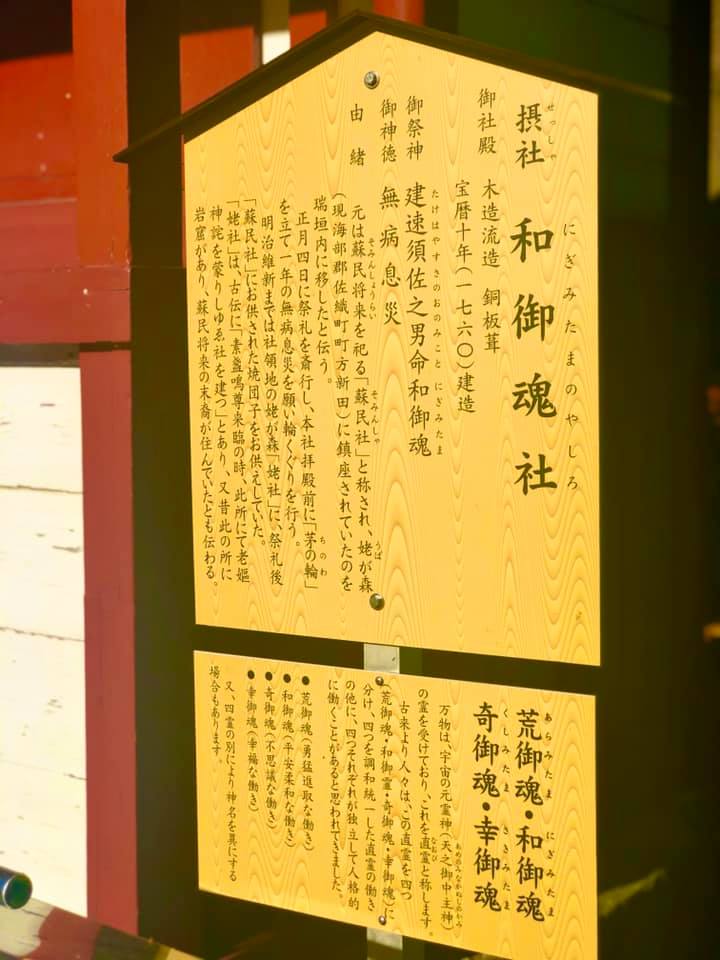 摂社 和御魂社
せっしゃ にぎみたまのやしろ
御社殿 木造流造 銅板葺
宝暦十年(一七六〇)建造
御祭神 建速須佐之男命和御魂
たけはやすさのおのみこと にぎみたま
御神徳 無病息災
由緒
元は蘇民将来を祀る「蘇民社」と称され、姥が森
そみんしょうらい そみんしゃ うば
(現海部郡佐織町町方新田)に鎮座されていたのを
瑞垣内に移したと伝う。
正月四日に祭礼を斎行し、本社拝殿前に「茅の輪」
ちのわ
を立て一年の無病息災を願い輪くぐりを行う。
明治維新までは社領地の姥が森「姥社」に、祭礼後
「蘇民社」にお供された焼団子をお供えしていた。
「姥社」は、古伝に「素盞嗚尊来臨の時、此所にて老嫗
神詫を蒙りしゆゑ社を建つ」とあり、又昔此の所に
岩窟があり、蘇民将来の末裔が住んでいたとも伝わる。
荒御魂・和御魂
あらみたま にぎみたま
奇御魂・幸御魂
くしみたま さきみたま
万物は、宇宙の元霊神(天之御中主神)
あめのみなかぬしのかみ
の霊を受けており、これを直霊と称します。
なおひ
古来より人々は、この直霊を四つ
荒御魂・和御霊・奇御魂・幸御魂)に
分け、四つを調和統一した直霊の働き
の他に、四つそれぞれが独立して人格的
に働くことがあると思われてきました。
●荒御魂(勇猛進取な働き)
●和御魂(平安柔和な働き)
●奇御魂(不思議な働き)
●幸御魂(幸福な働き)
又、四霊の別により神名を異にする
場合もあります。